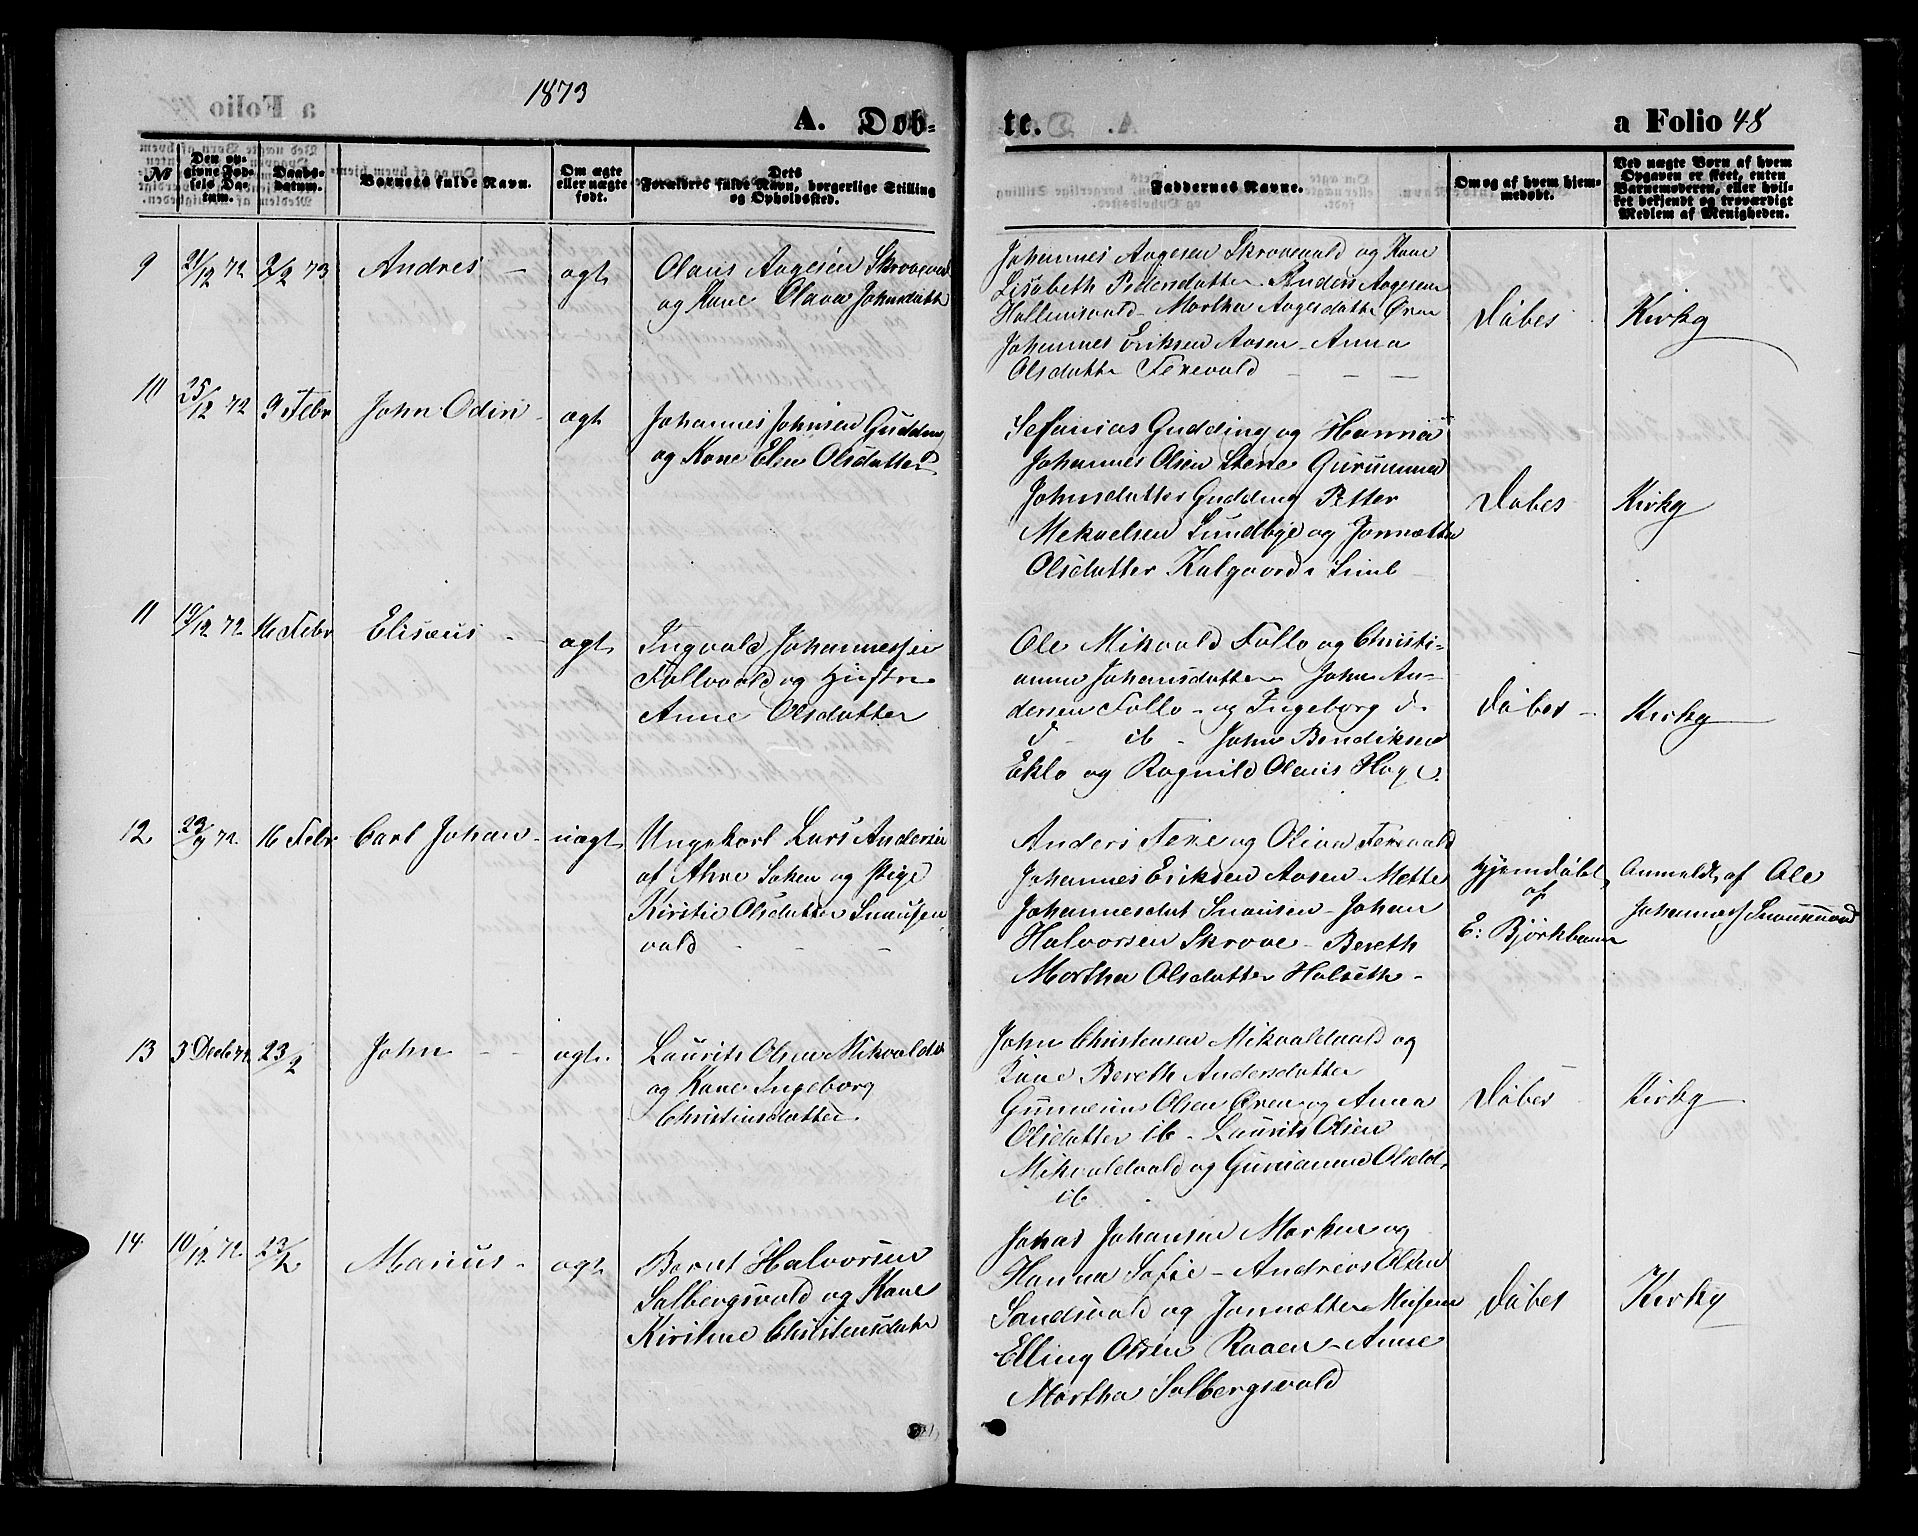 1873
A. Døb-
te.
a Folio 48
№
Den op-
givne Fød-
sels Da-
tum.
Daabs-
datum.
Barnets fulde Navn.
Om ægte
eller uægte
født.
Dets
Forældres fulde Navn, borgerlige Stilling
og Opholdssted.
Faddernes Navne.
Om og af hvem hjem-
medøbt.
Ved uægte Børn af hvem
Opgaven er skeet, enten
Barnemoderen, eller hvil-
ket bekjendt og troværdigt
Medlem af Menigheden.
9
21/12 72
2/2 73
Andres -
ægt
Olaus Aagesen
og Kone Olava Johnsdatt
Johannes Aagesen Skrovevald og Kone
Lisabeth Pedersdatter Anders Aagesen
Hallemsvald - Martha Aagesdatte Øren
Johannes Eriksen Aasen - Anna
Olsdatte Fexevald - - -
Døbes
Kirky
10
25/12 72
9 Febr
John Odin -
ægt
Johannes Johnsen Gudding
og Kone Elen Olsdatter
Sefanias Gudding og Hanna
Johannes Olsen Stene Gurumma
Johnsdatter Gudding Petter
Mekaelsen Sundbye og Jonnætta
Olsdatter Kalgaards
Døbes
Kirky
11
19/12 72
16 Febr
Elisæus - -
ægt
Ingvald Johannessen
Follovald og Hustru
Anne Olsdatter
Ole Mikvald Follo og Christi-
anna Johansdatter John An-
dersen Follo - og Ingeborg d-
d- ib - John Bendiksen
Eklo og Ragnild Olaus Hage
Døbes -
Kirky
12
23/9 72
16 Febr
Carl Johan -
uægt
Ungekarl Lars Andersen
af Ahre Soken og Pige
Kirstie Olsdatter Snausen
vald - - -
Anders Fexe og Olina Fexevald
Johannes Eriksen Aasen Mette
Johannesdat Snausen - Johan
Halvorsen Skrove - Bereth
Martha Olsdatter Halseth -
Hjemdøbt
af
E: Bjørkbann
Anmeldt af Ole
Johannes Snausenvald
13
3 Decb 72
23/2
John - -
ægt.
Laurits Olsen Mikvoldva
og Kone Ingeborg
Christiansdatter
John Christensen Mikvoldvald og
Kone Bereth Andersdatter
Gunnerius Olsen Øren og Anna
Olsdatter ib - Laurits Olsen
Mikvoldvald og Gurianna Olsdt.
ib
Døbes
Kirky
14.
10/12 72.
23/2
Marius -
ægt
Bernt Halvorsen
Salbergsvald og Kone
Kirstine Christensdatte
Johas Johansen Marken og
Hanna Sofie - Andreas Olsen
Sandsvald og Jonnætta
Elling Olsen Raaen - Anne
Martha Salbergsvald
Døbes
Kirky